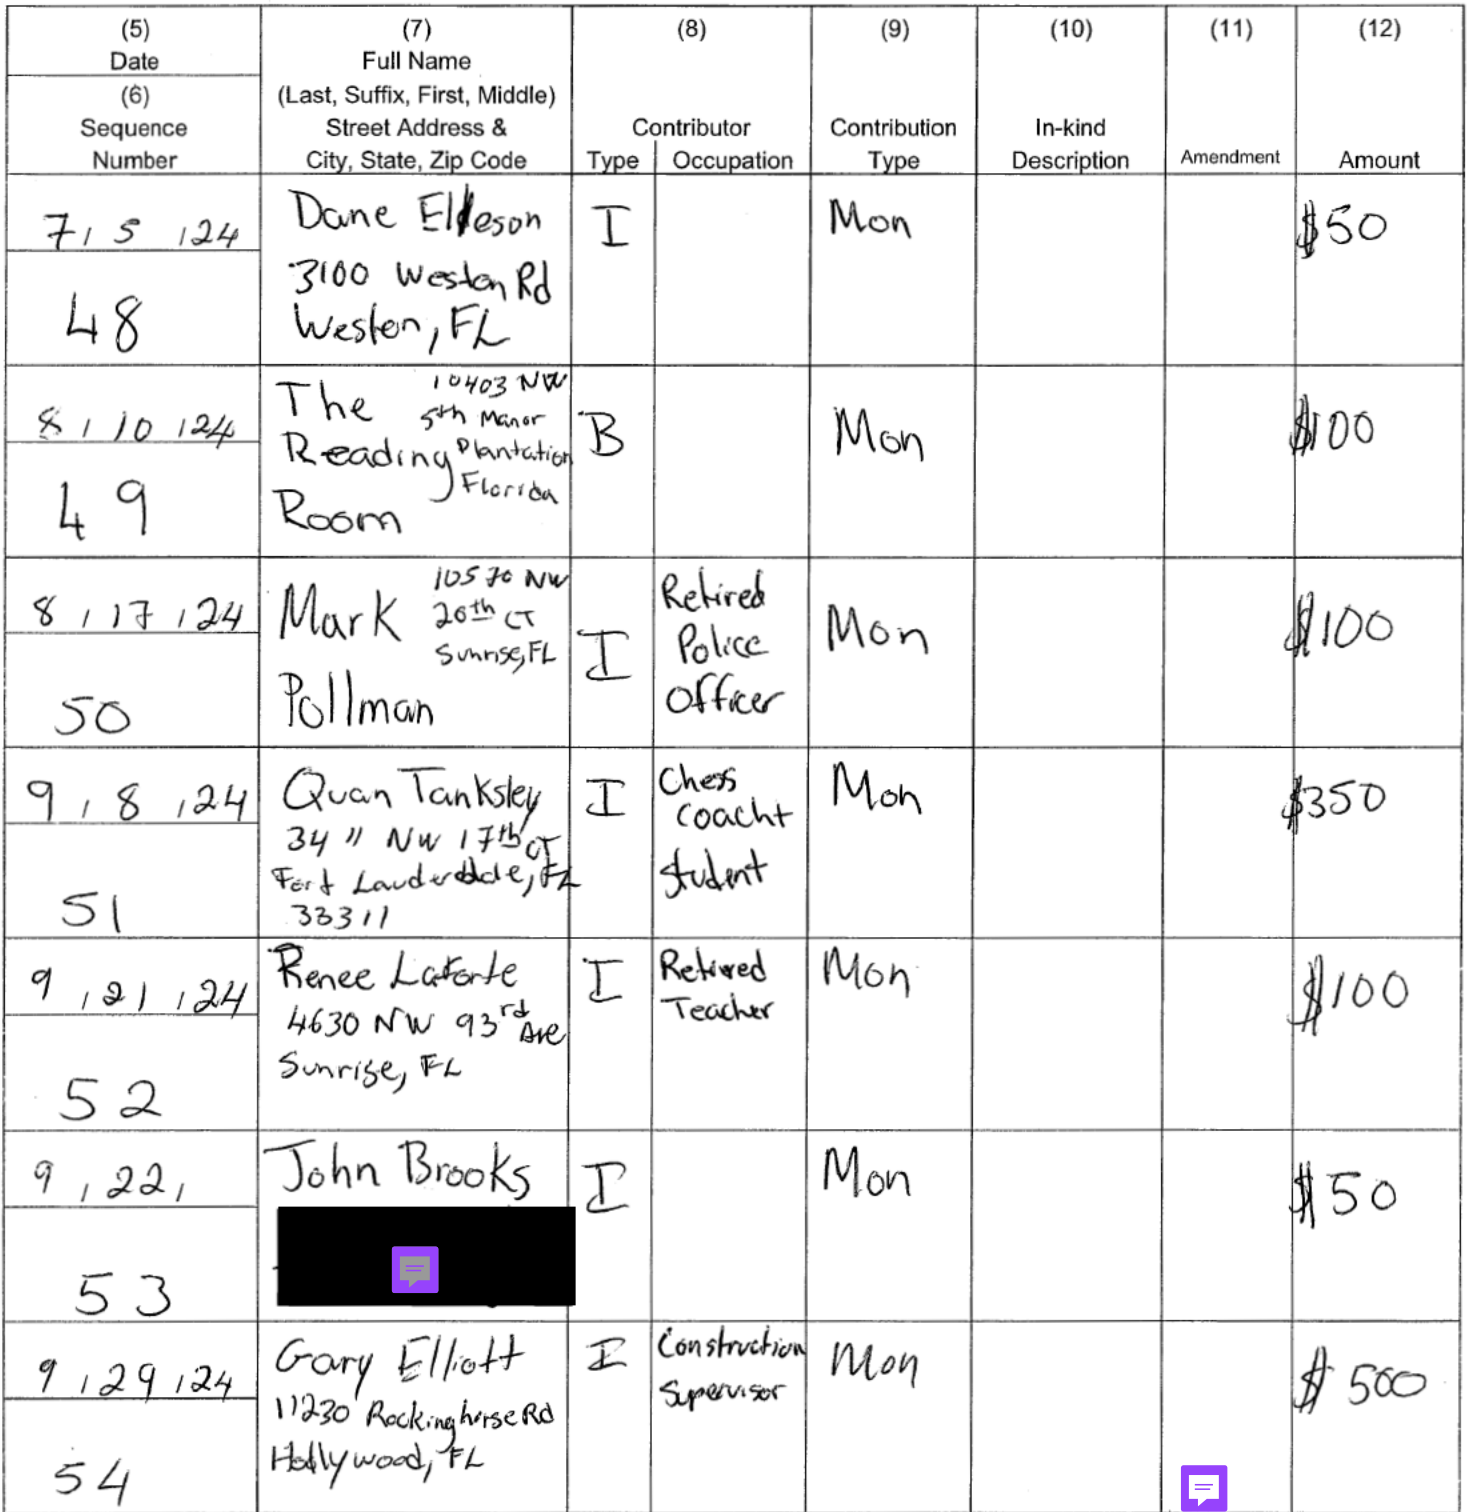 (5)
Date
(6)
Sequence
Number
(7)
Full Name
(Last, Suffix, First, Middle)
Street Address &
City, State, Zip Code
(8)
Contributor
Type Occupation
(9)
Contribution
Type
(10)
In-kind
Description
(11)
Amendment
(12)
Amount
7, 5 ,24
48
Dane Elleson
3100 Weston Rd
Weston, FL
I
Mon
$50
8, 10 ,24
49
The
Reading
Room
10403 NW
5th Manor
Plantation
Florida
B
Mon
$100
8, 17 ,24
50
Mark
Pollman
10570 NW
20th CT
Sunrise, FL
I
Retired
Police
Officer
Mon
$100
9, 8 ,24
51
Quan Tanksley
34 11 NW 17th CT
Fort Lauderdale, FL
33311
I
Chess
Coach+
Student
Mon
$350
9 ,21 ,24
52
Renee LaForte
4630 NW 93rd Ave
Sunrise, FL
I
Retired
Teacher
Mon
$100
9 ,22,
53
John Brooks
I
Mon
$50
9 ,29 ,24
54
Gary Elliott
11230 Rockinghorse Rd
Hollywood, FL
I
Construction
Supervisor
Mon
$500